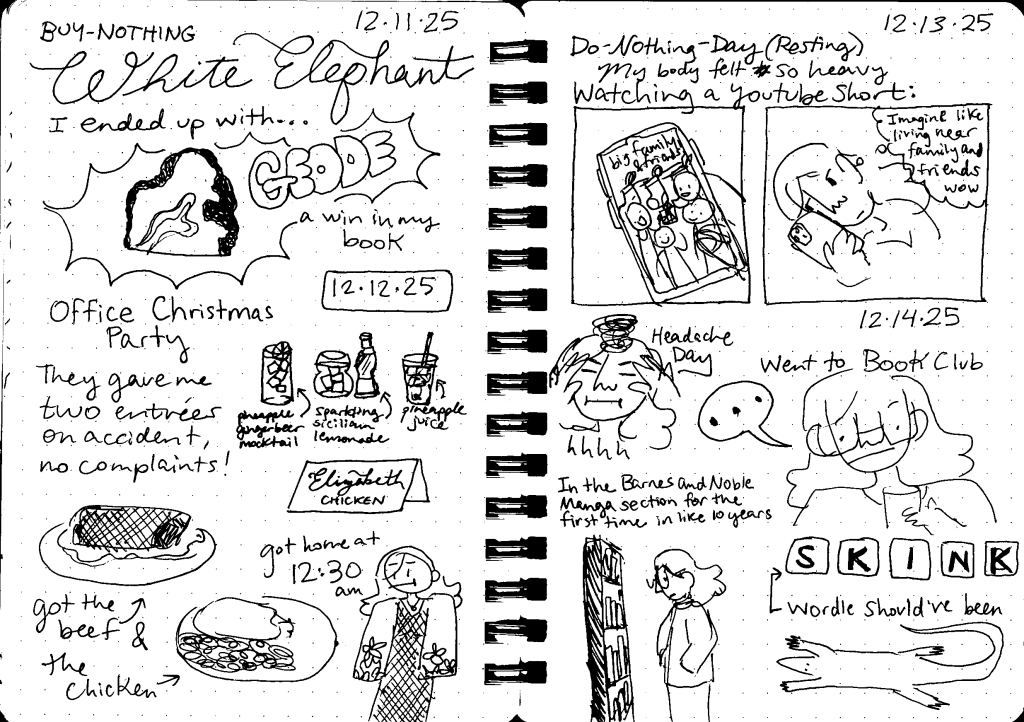 12.11.25
BUY-NOTHING
White Elephant
I ended up with...
GEODE
a win in my
book
12.12.25
Office Christmas
Party
They gave me
two entrées
on accident,
no complaints!
pineapple
gingerbeer
mocktail
sparkling
sicilian
lemonade
pineapple
juice
Elizabeth
CHICKEN
got the
beef &
the
chicken
got home at
12:30
am
12.13.25
Do-Nothing-Day (Resting)
My body felt so heavy
Watching a Youtube Short:
big family
& friends
Imagine like
living near
family and
friends
wow
Headache
Day
hhhh
12.14.25
Went to Book Club
In the Barnes and Noble
Manga section for the
first time in like 10 years
SKINK
Wordle should've been